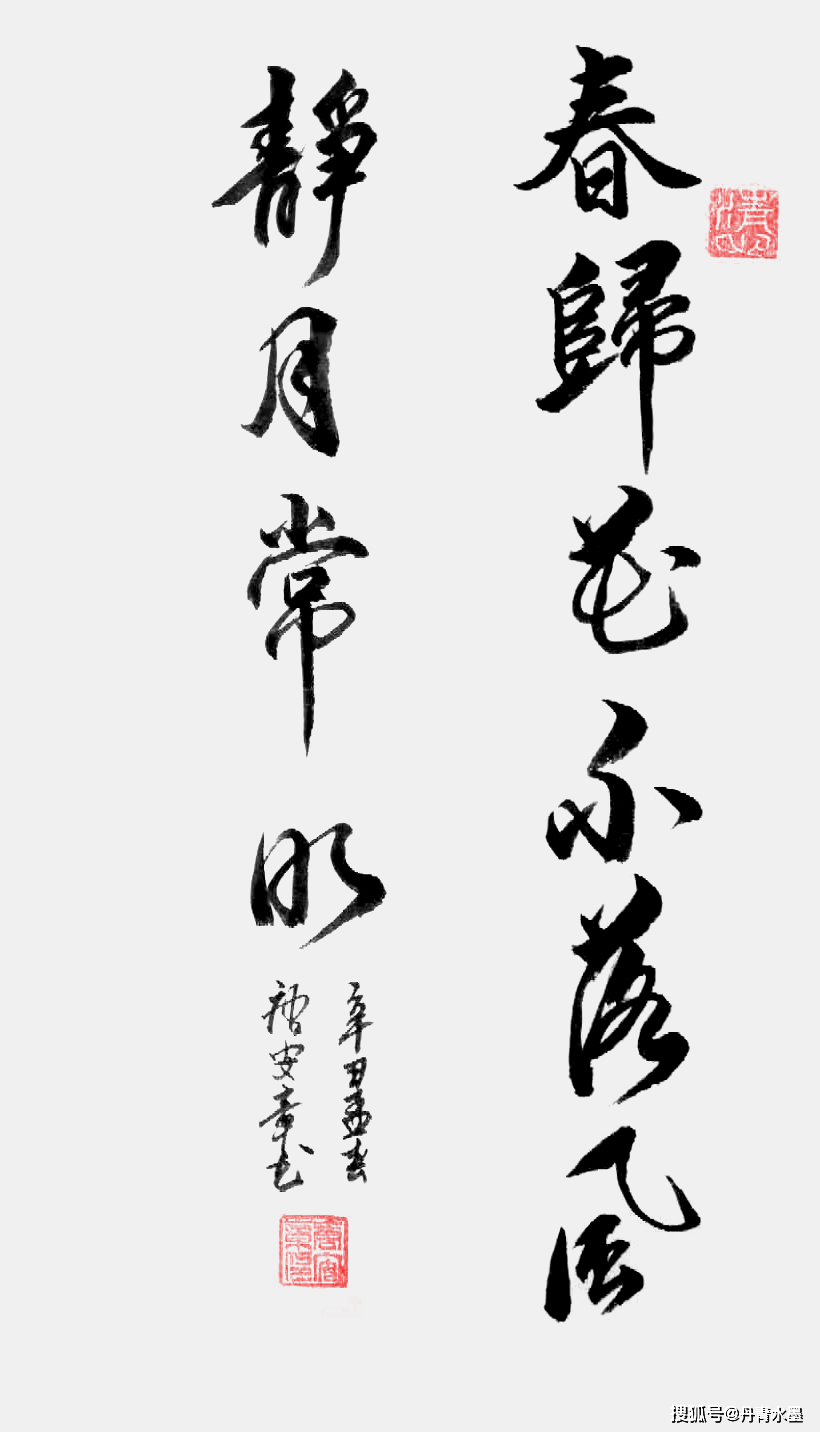 春歸花不落風
靜月常明
辛丑孟春
安章书
搜狐号@丹青水墨